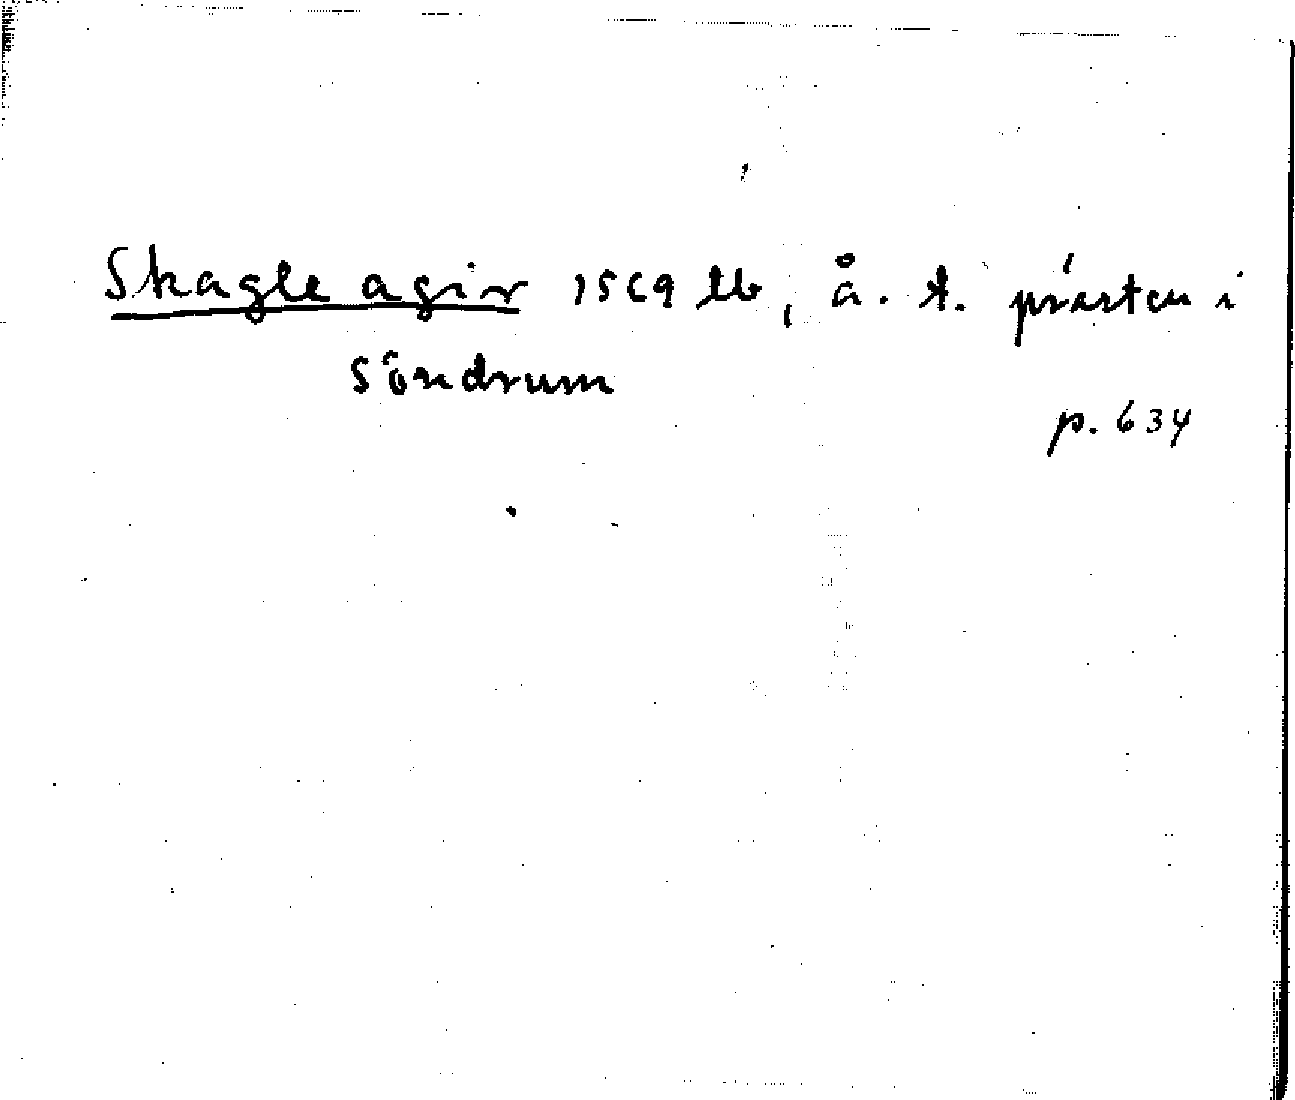 Skagle agir 1569 lb, å. t. prästen i
Söndrum
p. 634